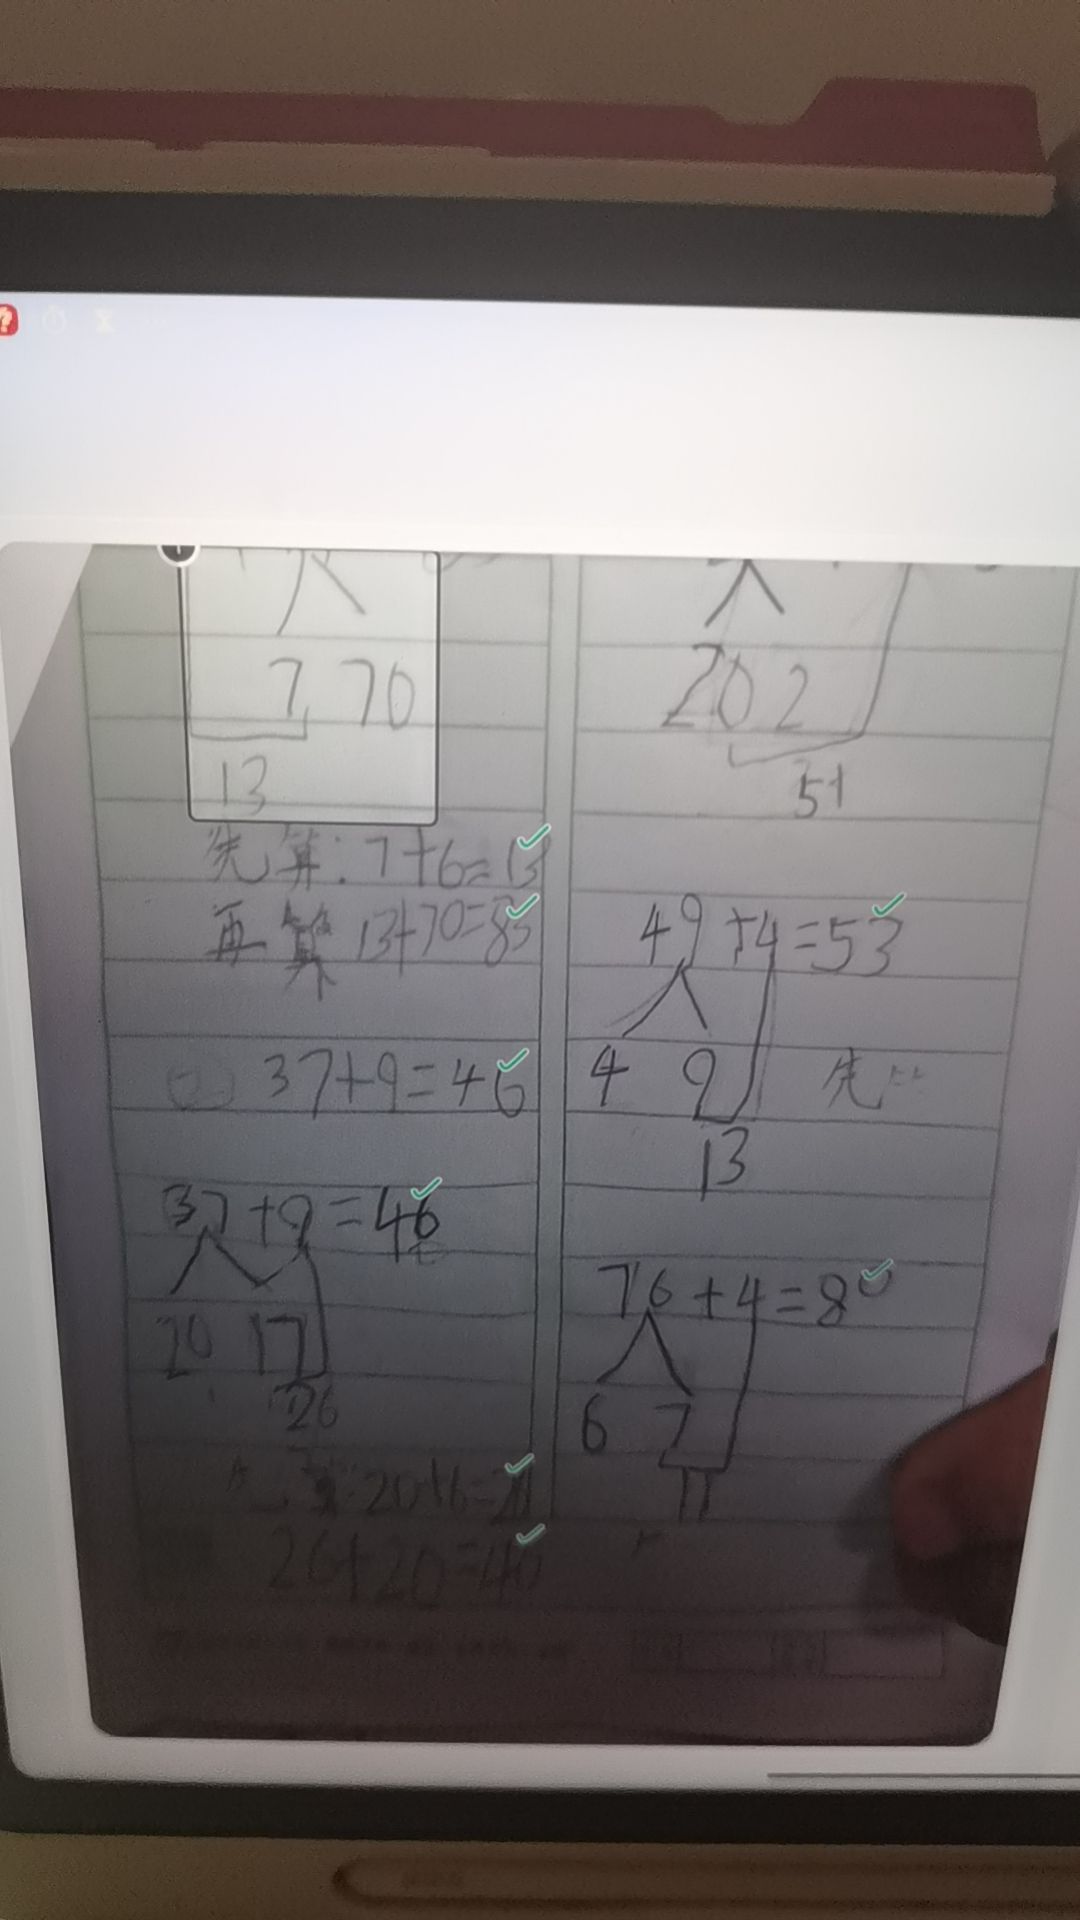 7 70
13
先算:7+6=13
再算 13+70=83
37+9=46
37+9=46
20 17
26
26+20=46
20 2
51
49+4=53
4 9
先
13
76+4=80
6 7
11